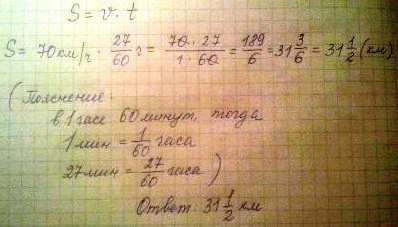 S = v · t
S = 70 км/ч · 27/60 ч = 70 · 27 / 1 · 60 = 189/6 = 31 3/6 = 31 1/2 (км)
(Пояснение:
в 1 часе 60 минут, тогда
1 мин = 1/60 часа
27 мин = 27/60 часа)
Ответ: 31 1/2 км